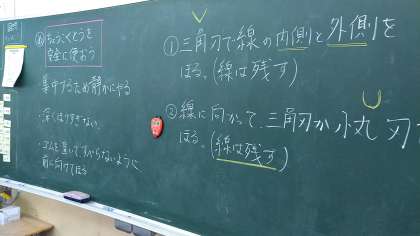 めちょうこくとうを
安全に使おう
集中するため静かにやる
・深くほりすぎない。
・ゴムを置いて すべらないように
前に向けてほる
①三角刃で線の内側と外側を
ほる。(線は残す)
②線に向かって、三角刃か小丸刃
ほる。(線は残す)